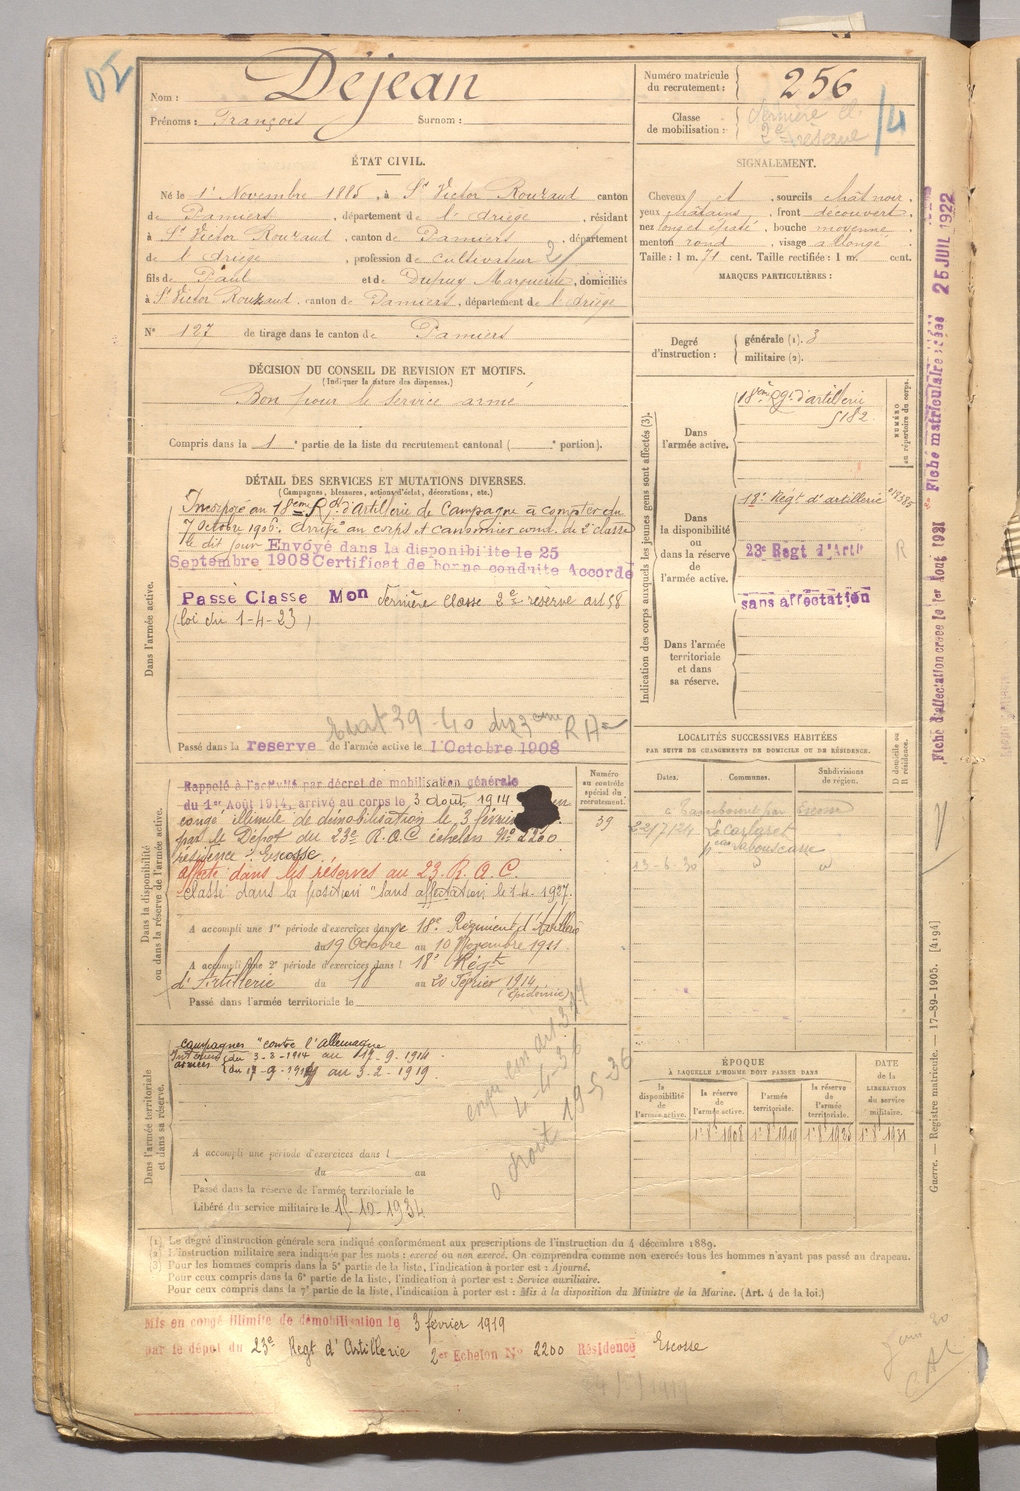 Nom : Déjean
Prénoms : François Surnom :
Numéro matricule du recrutement : 256
Classe de mobilisation : dernière cl. 2e réserve /4
ÉTAT CIVIL.
Né le 1er Novembre 1885, à St Victor Rouzaud canton
de Pamiers, département de l'Ariège, résidant
à St Victor Rouzaud, canton de Pamiers, département
de l'Ariège, profession de cultivateur
fils de Paul et de Dupuy Marguerite, domiciliés
à St Victor Rouzaud, canton de Pamiers, département de l'Ariège
No 127 de tirage dans le canton de Pamiers
SIGNALEMENT.
Cheveux et, sourcils chât noir,
yeux châtains, front découvert,
nez long et épaté, bouche moyenne,
menton rond, visage allongé
Taille : 1 m. 71 cent. Taille rectifiée : 1 m. cent.
MARQUES PARTICULIÈRES :
Degré d'instruction : générale (1). 3
militaire (2).
DÉCISION DU CONSEIL DE REVISION ET MOTIFS.
(Indiquer la nature des dispenses.)
Bon pour le service armé
Compris dans la 1e partie de la liste du recrutement cantonal ( e portion).
DÉTAIL DES SERVICES ET MUTATIONS DIVERSES.
(Campagnes, blessures, actions d'éclat, décorations, etc.)
Dans l'armée active.
Incorporé au 18ème Rgt d'Artillerie de Campagne à compter du
7 octobre 1906. Arrivé au corps et canonnier cond. de 2e classe
le dit jour Envoyé dans la disponibilité le 25
Septembre 1908 Certificat de bonne conduite Accordé
Passé Classe Mon dernière classe 2e réserve art 58
(loi du 1-4-23)
39 40 du 23ème R A
Passé dans la reserve de l'armée active le 1 Octobre 1908
Indication des corps auxquels les jeunes gens sont affectés (3).
NUMÉRO au répertoire du corps.
Dans l'armée active.
18ème Rgt d'artillerie
5182
Dans la disponibilité ou dans la réserve de l'armée active.
18e Régt d'artillerie
23e Regt d'Artie R
sans affectation
Dans l'armée territoriale et dans sa réserve.
Dans la disponibilité ou dans la réserve de l'armée active.
Rappelé à l'activité par décret de mobilisation générale
du 1er Août 1914, arrivé au corps le 3 août 1914 en
congé illimité de démobilisation le 3 février
par le Dépot du 23e R.A.C échelon No 2200
résidence : Escosse
affecté dans les réserves au 23. R.A.C.
classé dans la position "sans affectation" le 1.4.1927.
A accompli une 1re période d'exercices dans le 18e Régiment d'Artillerie
du 19 Octobre au 10 Novembre 1911
A accompli une 2e période d'exercices dans l 18e Régt
d'Artillerie du 18 au 20 Février 1914
(épidémie)
Passé dans l'armée territoriale le
Numéro au contrôle spécial du recrutement.
39
LOCALITÉS SUCCESSIVES HABITÉES
PAR SUITE DE CHANGEMENTS DE DOMICILE OU DE RÉSIDENCE.
Dates. Communes. Subdivisions de région. D domicile ou R résidence.
22/7/24 Le Carlaret
13-6-30 " "
Dans l'armée territoriale et dans sa réserve.
Campagnes "contre l'Allemagne
Intérieur du 3-8-1914 au 17-9-1914
armées du 17-9-1914 au 3-2-1919.
19-5-36
A accompli une période d'exercices dans l
du au
Passé dans la réserve de l'armée territoriale le
Libéré du service militaire le 15-10-1934
ÉPOQUE
À LAQUELLE L'HOMME DOIT PASSER DANS
la disponibilité de l'armée active. la réserve de l'armée active. l'armée territoriale. la réserve de l'armée territoriale. DATE de la LIBÉRATION du service militaire.
1er 8bre 1908 1er 8bre 1919 1er 8bre 1925 1er 8bre 1931
(1) Le degré d'instruction générale sera indiqué conformément aux prescriptions de l'instruction du 4 décembre 1889.
(2) L'instruction militaire sera indiquée par les mots : exercé ou non exercé. On comprendra comme non exercés tous les hommes n'ayant pas passé au drapeau.
(3) Pour les hommes compris dans la 5e partie de la liste, l'indication à porter est : Ajourné.
Pour ceux compris dans la 6e partie de la liste, l'indication à porter est : Service auxiliaire.
Pour ceux compris dans la 7e partie de la liste, l'indication à porter est : Mis à la disposition du Ministre de la Marine. (Art. 4 de la loi.)
Mis en congé illimité de démobilisation le 3 février 1919
par le dépot du 23e Regt d'Artillerie 2er Echelon No 2200 Résidence Escosse
Fiche d'affectation créée le 1er Août 1921
Fiche matriculaire créée 25 JUIL 1922
Guerre. — Registre matricule. — 17-89-1905. [4194]